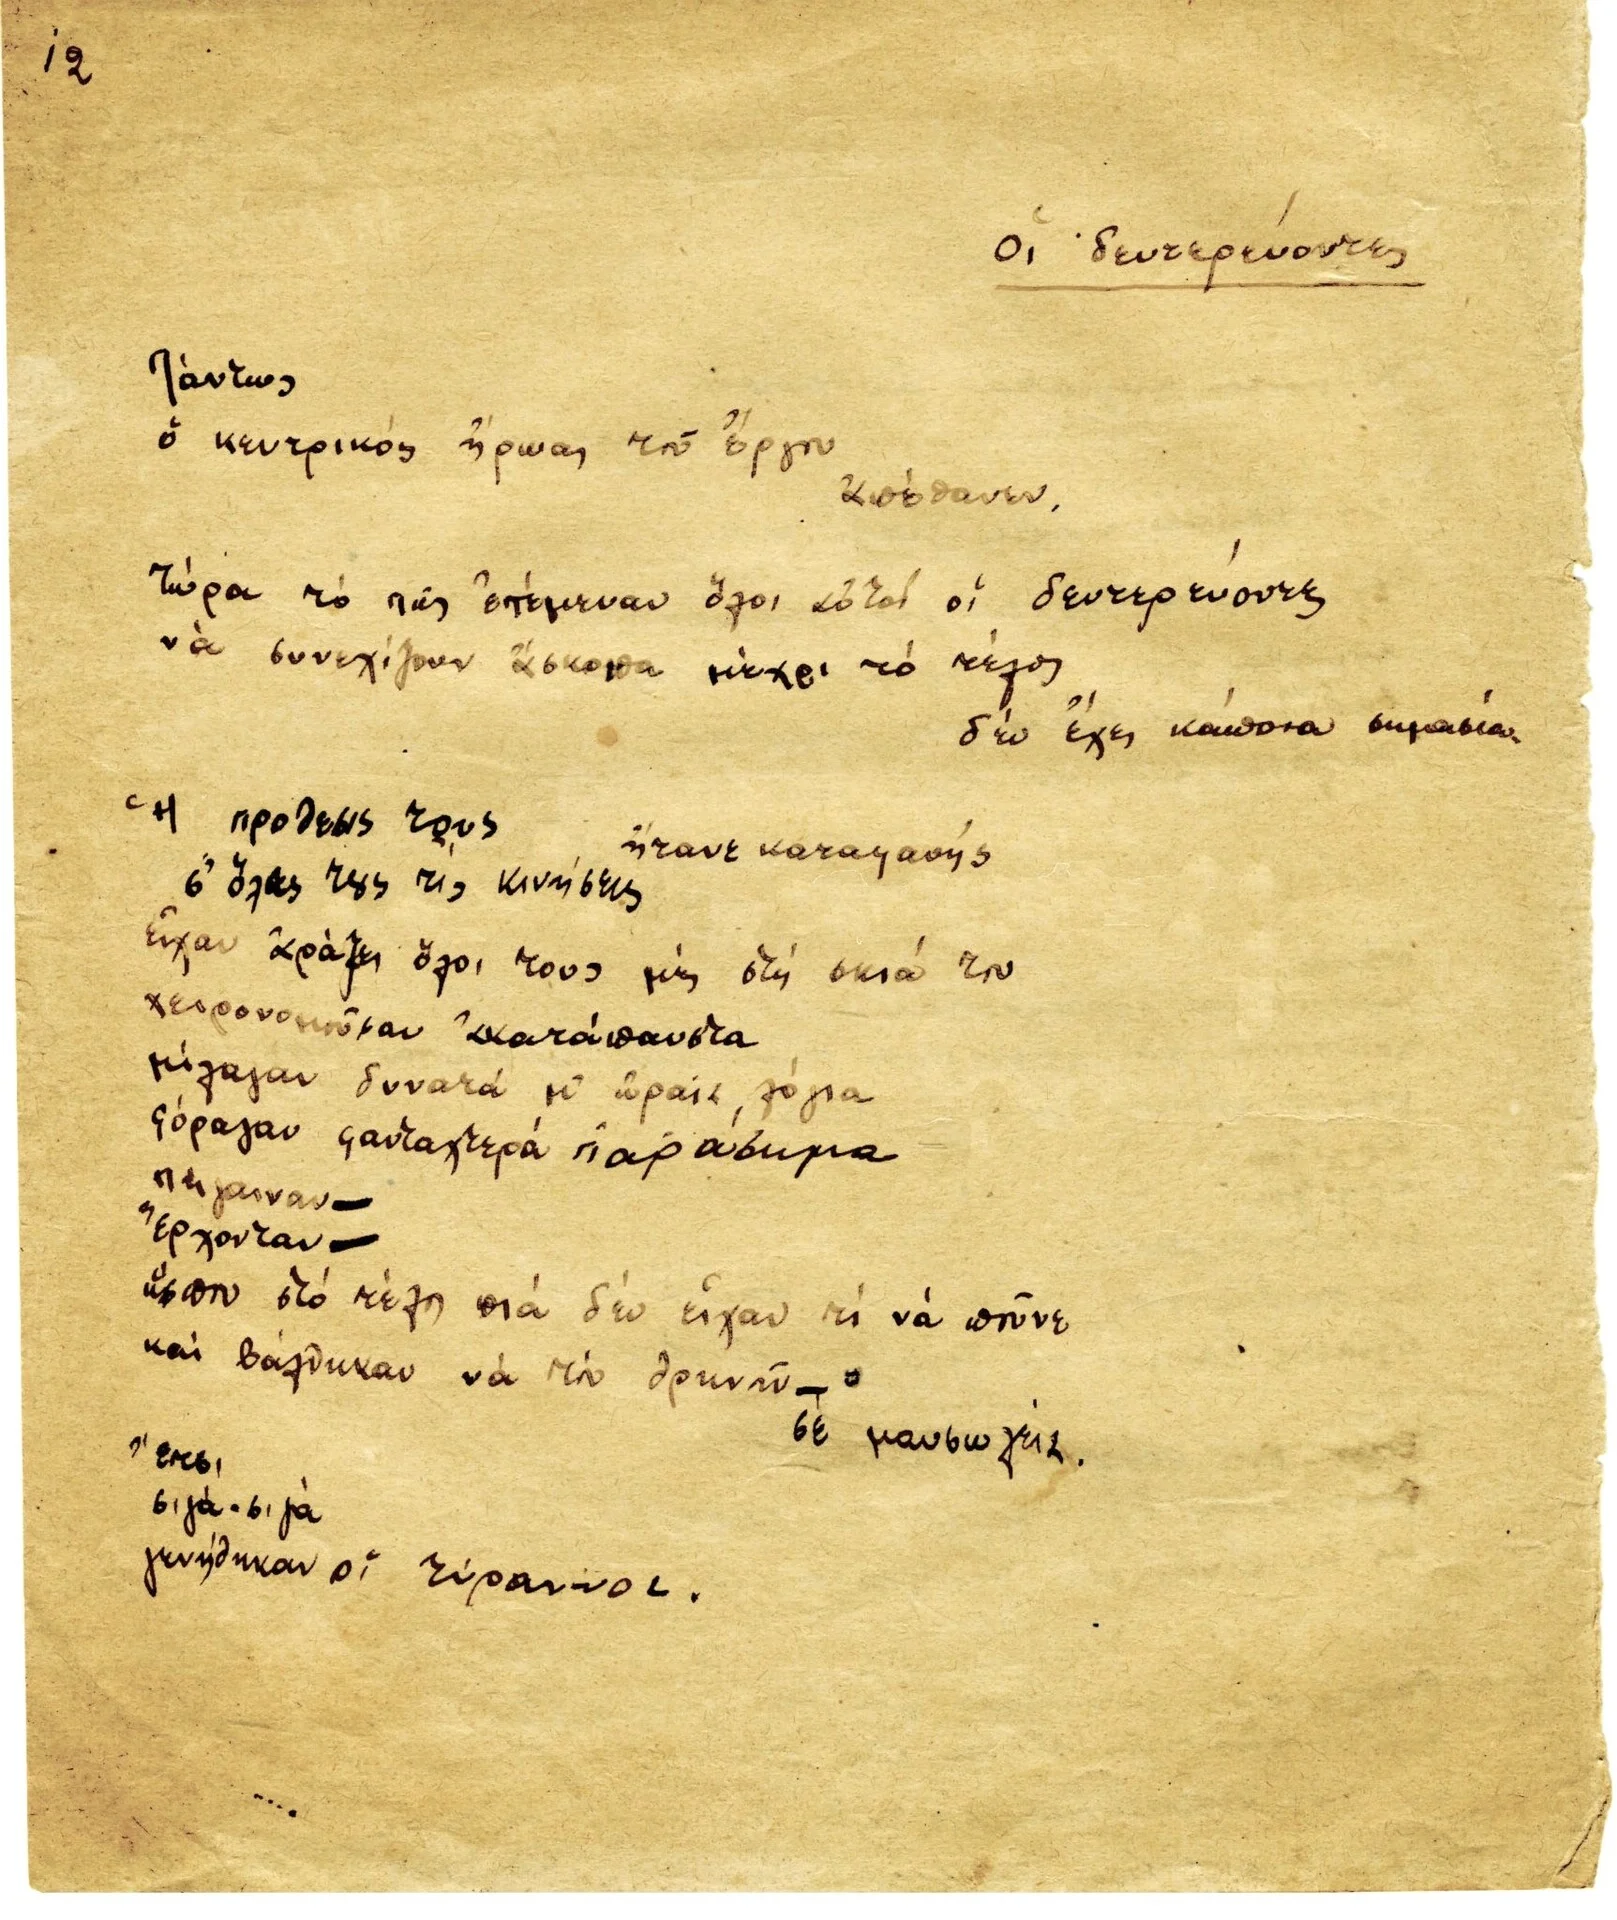 12
Οἱ δευτερεύοντες
Πάντως
ὁ κεντρικός ἥρωας τοῦ ἔργου
ἀπέθανεν.
τώρα τό πῶς ἐπέμεναν ὅλοι αὐτοί οἱ δευτερεύοντες
νά συνεχίζουν ἄσκοπα μέχρι τό τέλος
δέν ἔχει κάποια σημασία.
Ἡ προθεσις τους
ἤτανε καταφανής
σ' ὅλες τους τίς κινήσεις
εἶχαν ἀράξει ὅλοι τους μές στή σκιά του
χειρονομοῦσαν ἀκατάπαυστα
μίλαγαν δυνατά μ' ὡραῖα λόγια
φόραγαν φανταχτερά παράσημα
πηγαιναν—
ἐρχονταν—
ὥσπου στό τέλος πιά δέν εἶχαν τί νά ποῦνε
καί βάλθηκαν νά τόν θρηνοῦ—ν
σέ μαυσωλεῖα.
Ἔτσι
σιγά-σιγά
γενήθηκαν οἱ τύραννοι.